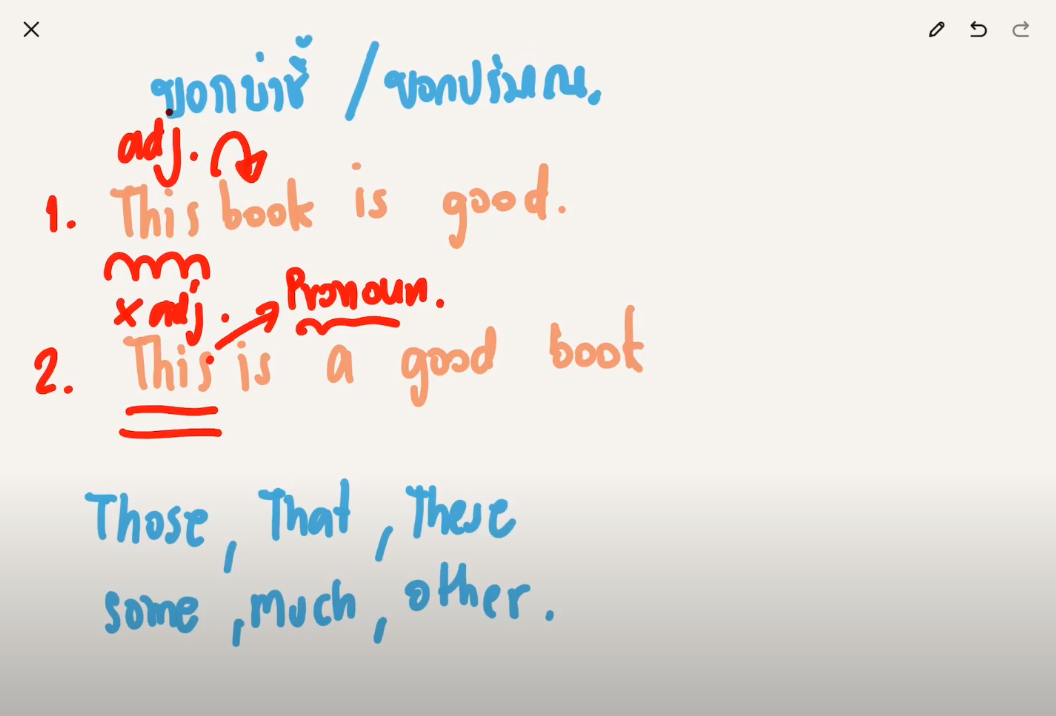 บอกบ่งชี้ / บอกปริมาณ.
adj.
1. This book is good.
x adj. Pronoun.
2. This is a good book
Those, That, These
some, much, other.